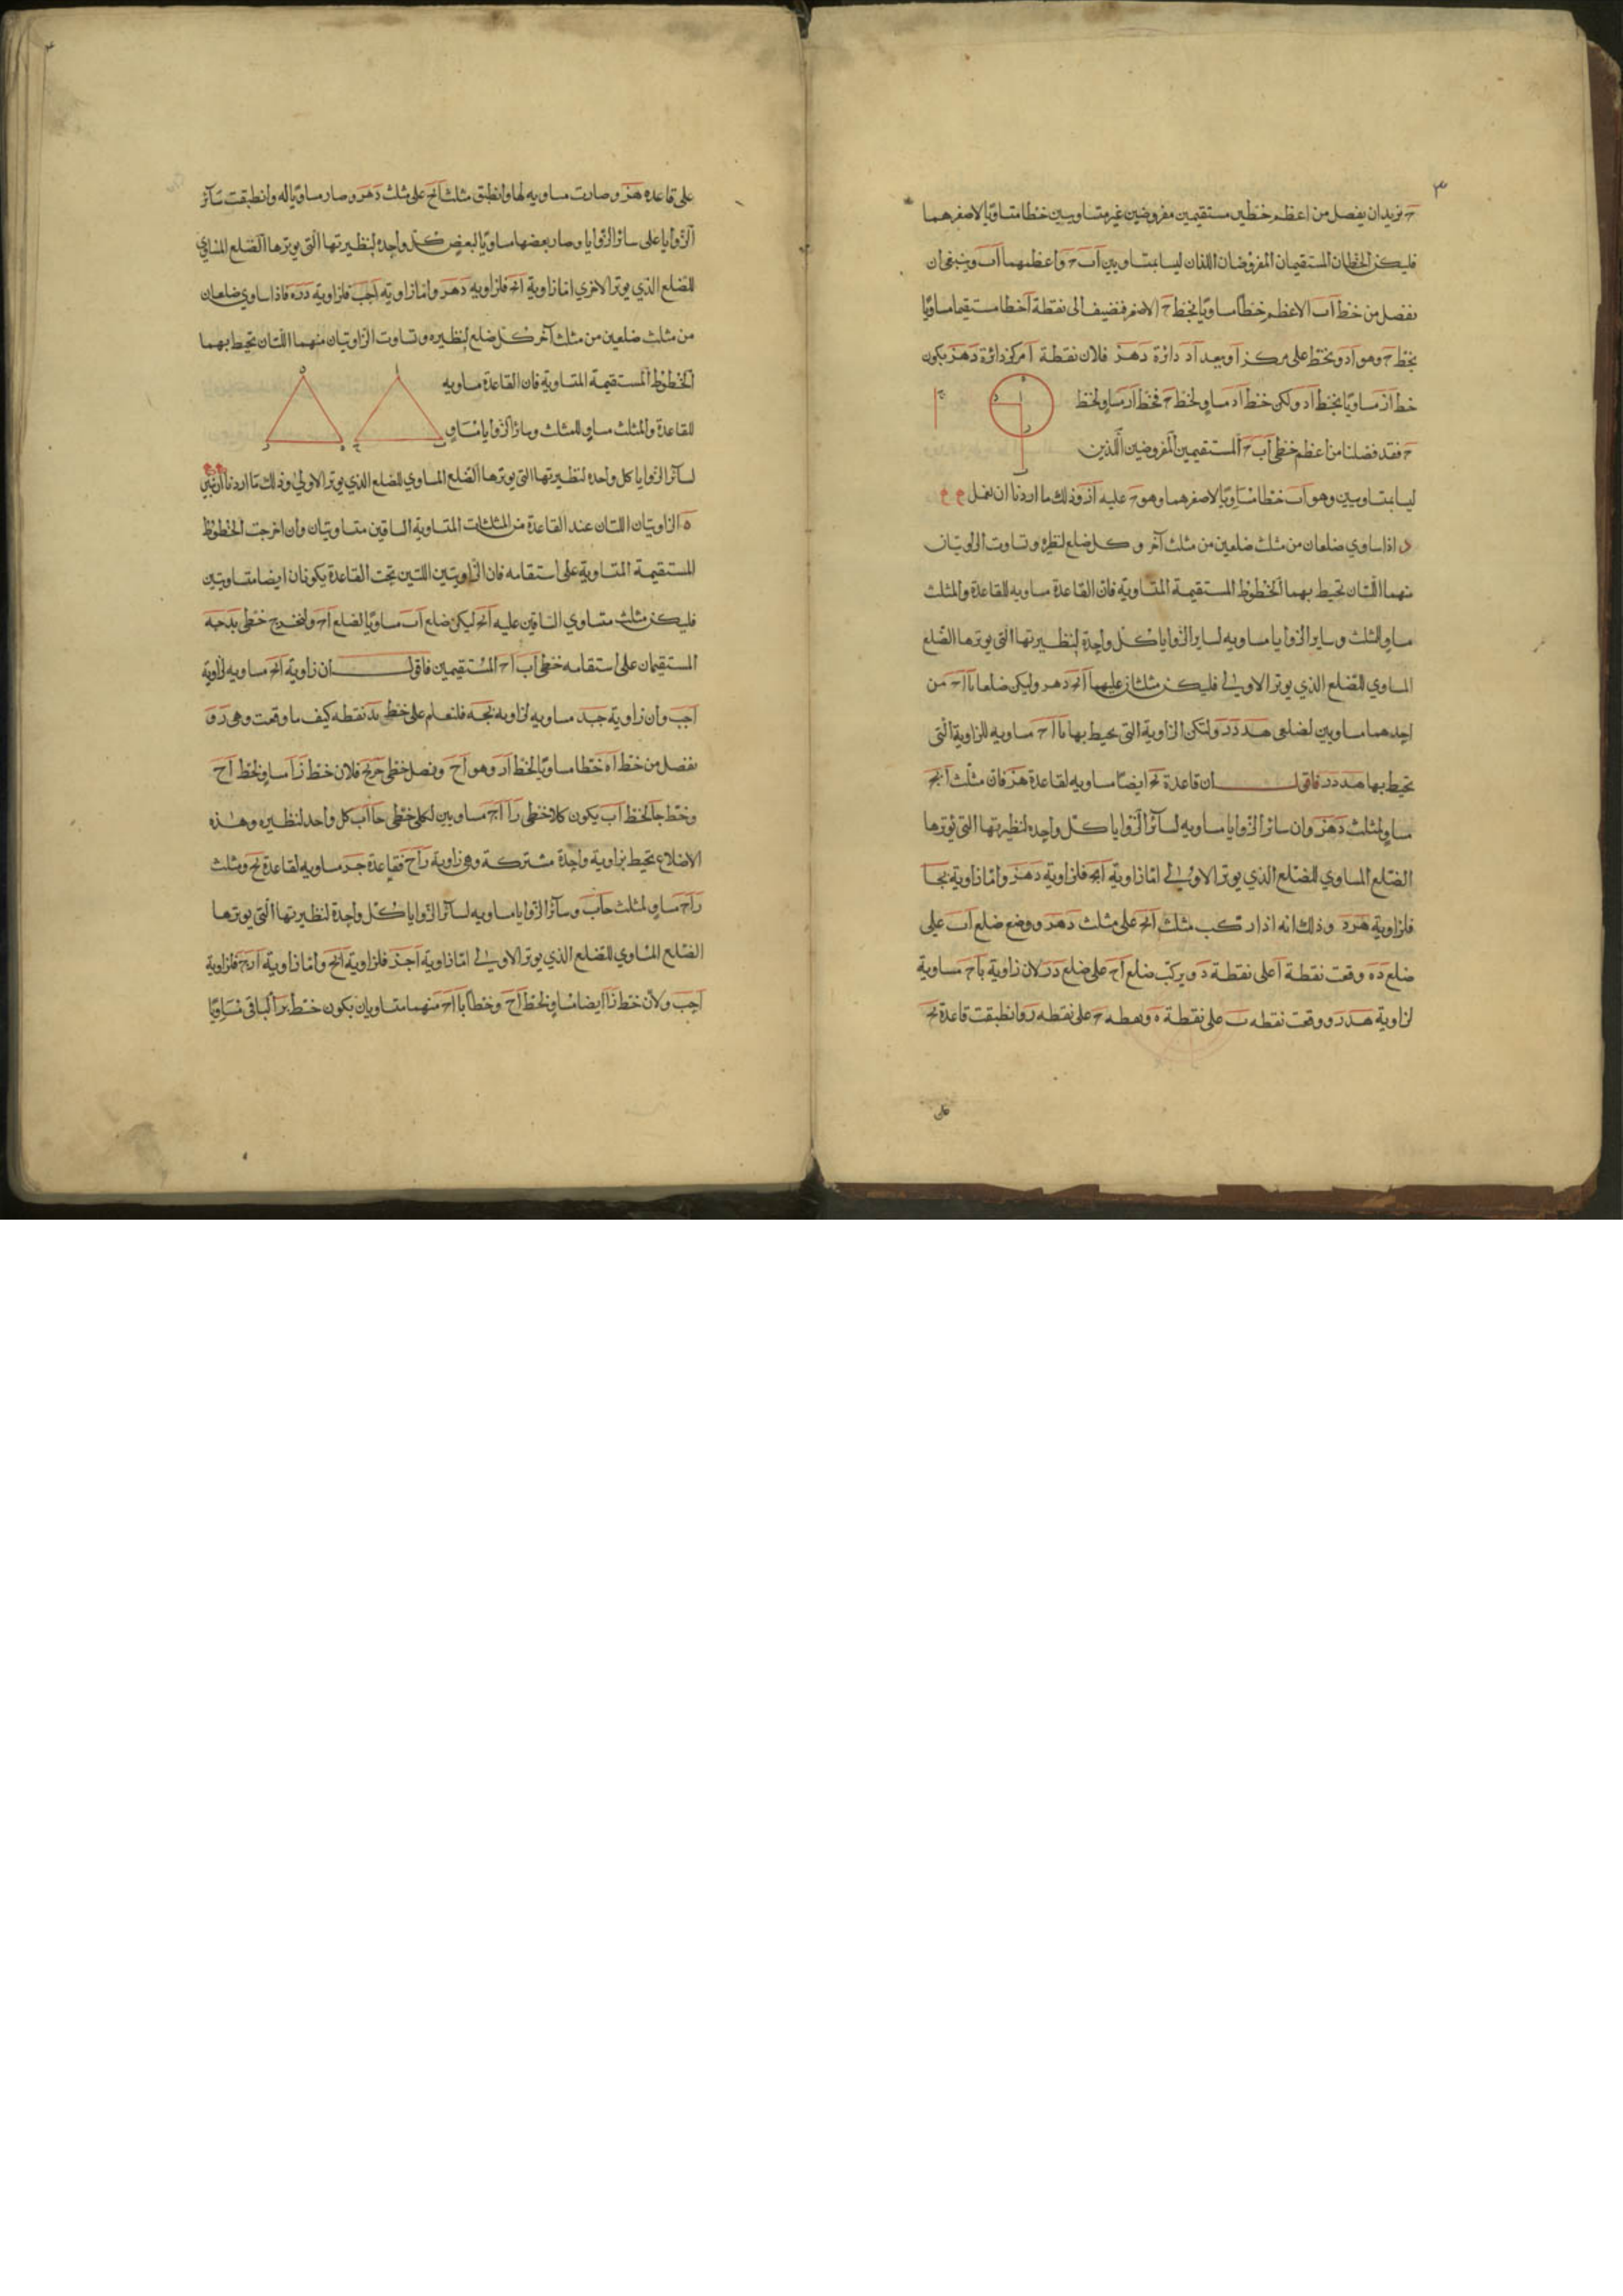 ٣
ج نريد ان نفصل من اعظم خطين مستقيمين مفروضين غير متساويين خطا مساويا لاصغرهما
فليكن الخطان المستقيمان المفروضان اللذان ليسا بمتساويين اب ح واعظمهما اب وينبغي ان
نفصل من خط اب الاعظم خطا مساويا لخط ح الاصغر فنضيف الى نقطة ا خطا مستقيما مساويا
لخط ح وهو اد ونخط على مركز ا وببعد اد دائرة دهز فلان نقطة ا مركز دائرة دهز يكون
خط از مساويا لخط اد ولكن خط اد مساو لخط ح فخط از مساو لخط
ح فقد فصلنا من اعظم خطي اب ح المستقيمين المفروضين اللذين
ليسا بمتساويين وهو اب خطا مساويا لاصغرهما وهو ح عليه از وذلك ما اردنا ان نعمل
د اذا ساوي ضلعان من مثلث ضلعين من مثلث آخر و كل ضلع لنظيره وتساوت الزاويتان
منهما اللتان تحيط بهما الخطوط المستقيمة المتساوية فان القاعدة مساويه للقاعدة والمثلث
مساو للمثلث وساير الزوايا مساويه لساير الزوايا كل واحدة لنظيرتها التي يوترها الضلع
المساوي للضلع الذي يوتر الاولى فليكن مثلثان عليهما ابح دهز وليكن ضلعا با اح من
احدهما مساويين لضلعي هد دز ولتكن الزاوية التي يحيط بها با اح مساويه للزاوية التي
تحيط بها هد دز فاقول ان قاعدة بح ايضا مساويه لقاعدة هز فان مثلث ابح
مساو لمثلث دهز وان سائر الزوايا مساويه لسائر الزوايا كل واحده لنظيرتها التي يوترها
الضلع المساوي للضلع الذي يوتر الاولى اما زاوية ابح فلزاوية دهز واما زاوية بحا
فلزاوية هزد وذلك انه اذا ركب مثلث ابح على مثلث دهز ووضع ضلع اب على
ضلع ده وقعت نقطة ا على نقطة د ويركب ضلع اح على ضلع دز لان زاوية باح مساوية
لزاوية هدز ووقعت نقطه ب على نقطة ه ونقطه ح على نقطه ز وانطبقت قاعدة بح
على
على قاعده هز وصارت مساويه لها وانطبق مثلث ابح على مثلث دهز وصار مساويا له وانطبقت سائر
الزوايا على سائر الزوايا وصار بعضها مساويا لبعض كل واحدة لنظيرتها التي يوترها الضلع المساوي
للضلع الذي يوتر الاخري اما زاوية ابح فلزاويه دهز واما زاويه احب فلزاوية دزه فاذا ساوي ضلعان
من مثلث ضلعين من مثلث آخر كل ضلع لنظيره وتساوت الزاويتان منهما اللتان تحيط بهما
الخطوط المستقيمة المتساوية فان القاعدة مساويه
للقاعدة والمثلث مساو للمثلث وسائر الزوايا مساو
لسائر الزوايا كل واحده لنظيرتها التي يوترها الضلع المساوي للضلع الذي يوتر الاولي وذلك ما اردنا ان نبين
ه الزاويتان اللتان عند القاعدة من المثلثات المتساوية الساقين متساويتان وان اخرجت الخطوط
المستقيمة المتساوية على استقامه فان الزاويتين اللتين تحت القاعدة يكونان ايضا متساويتين
فليكن مثلث متساوي الساقين عليه ابح ليكن ضلع اب مساويا لضلع اح ولنخرج خطي بد حه
المستقيمان على استقامه خطي اب اح المستقيمين فاقول ان زاوية ابح مساويه لزاوية
احب وان زاوية حبد مساويه لزاويه بحه فلنعلم على خط بد نقطه كيف ما وقعت وهى ز و
نفصل من خط اه خطا مساويا لخط از وهو اح ونصل خطي حز بح فلان خط زا مساو لخط اح
وخط حا لخط اب يكون كلا خطي زا اح مساويين لكلي خطي حا اب كل واحد لنظيره وهذه
الاضلاع تحيط بزاوية واحدة مشتركة وهى زاوية زاح فقاعدة حز مساويه لقاعدة بح ومثلث
زاح مساو لمثلث حاب وسائر الزوايا مساويه لسائر الزوايا كل واحدة لنظيرتها التي يوترها
الضلع المساوي للضلع الذي يوتر الاولى اما زاوية احز فلزاوية ابح واما زاوية ازح فلزاوية
احب ولان خط زا ايضا مساو لخط اح وخطا با اح منهما متساويان يكون خط بز الباقي مساويا